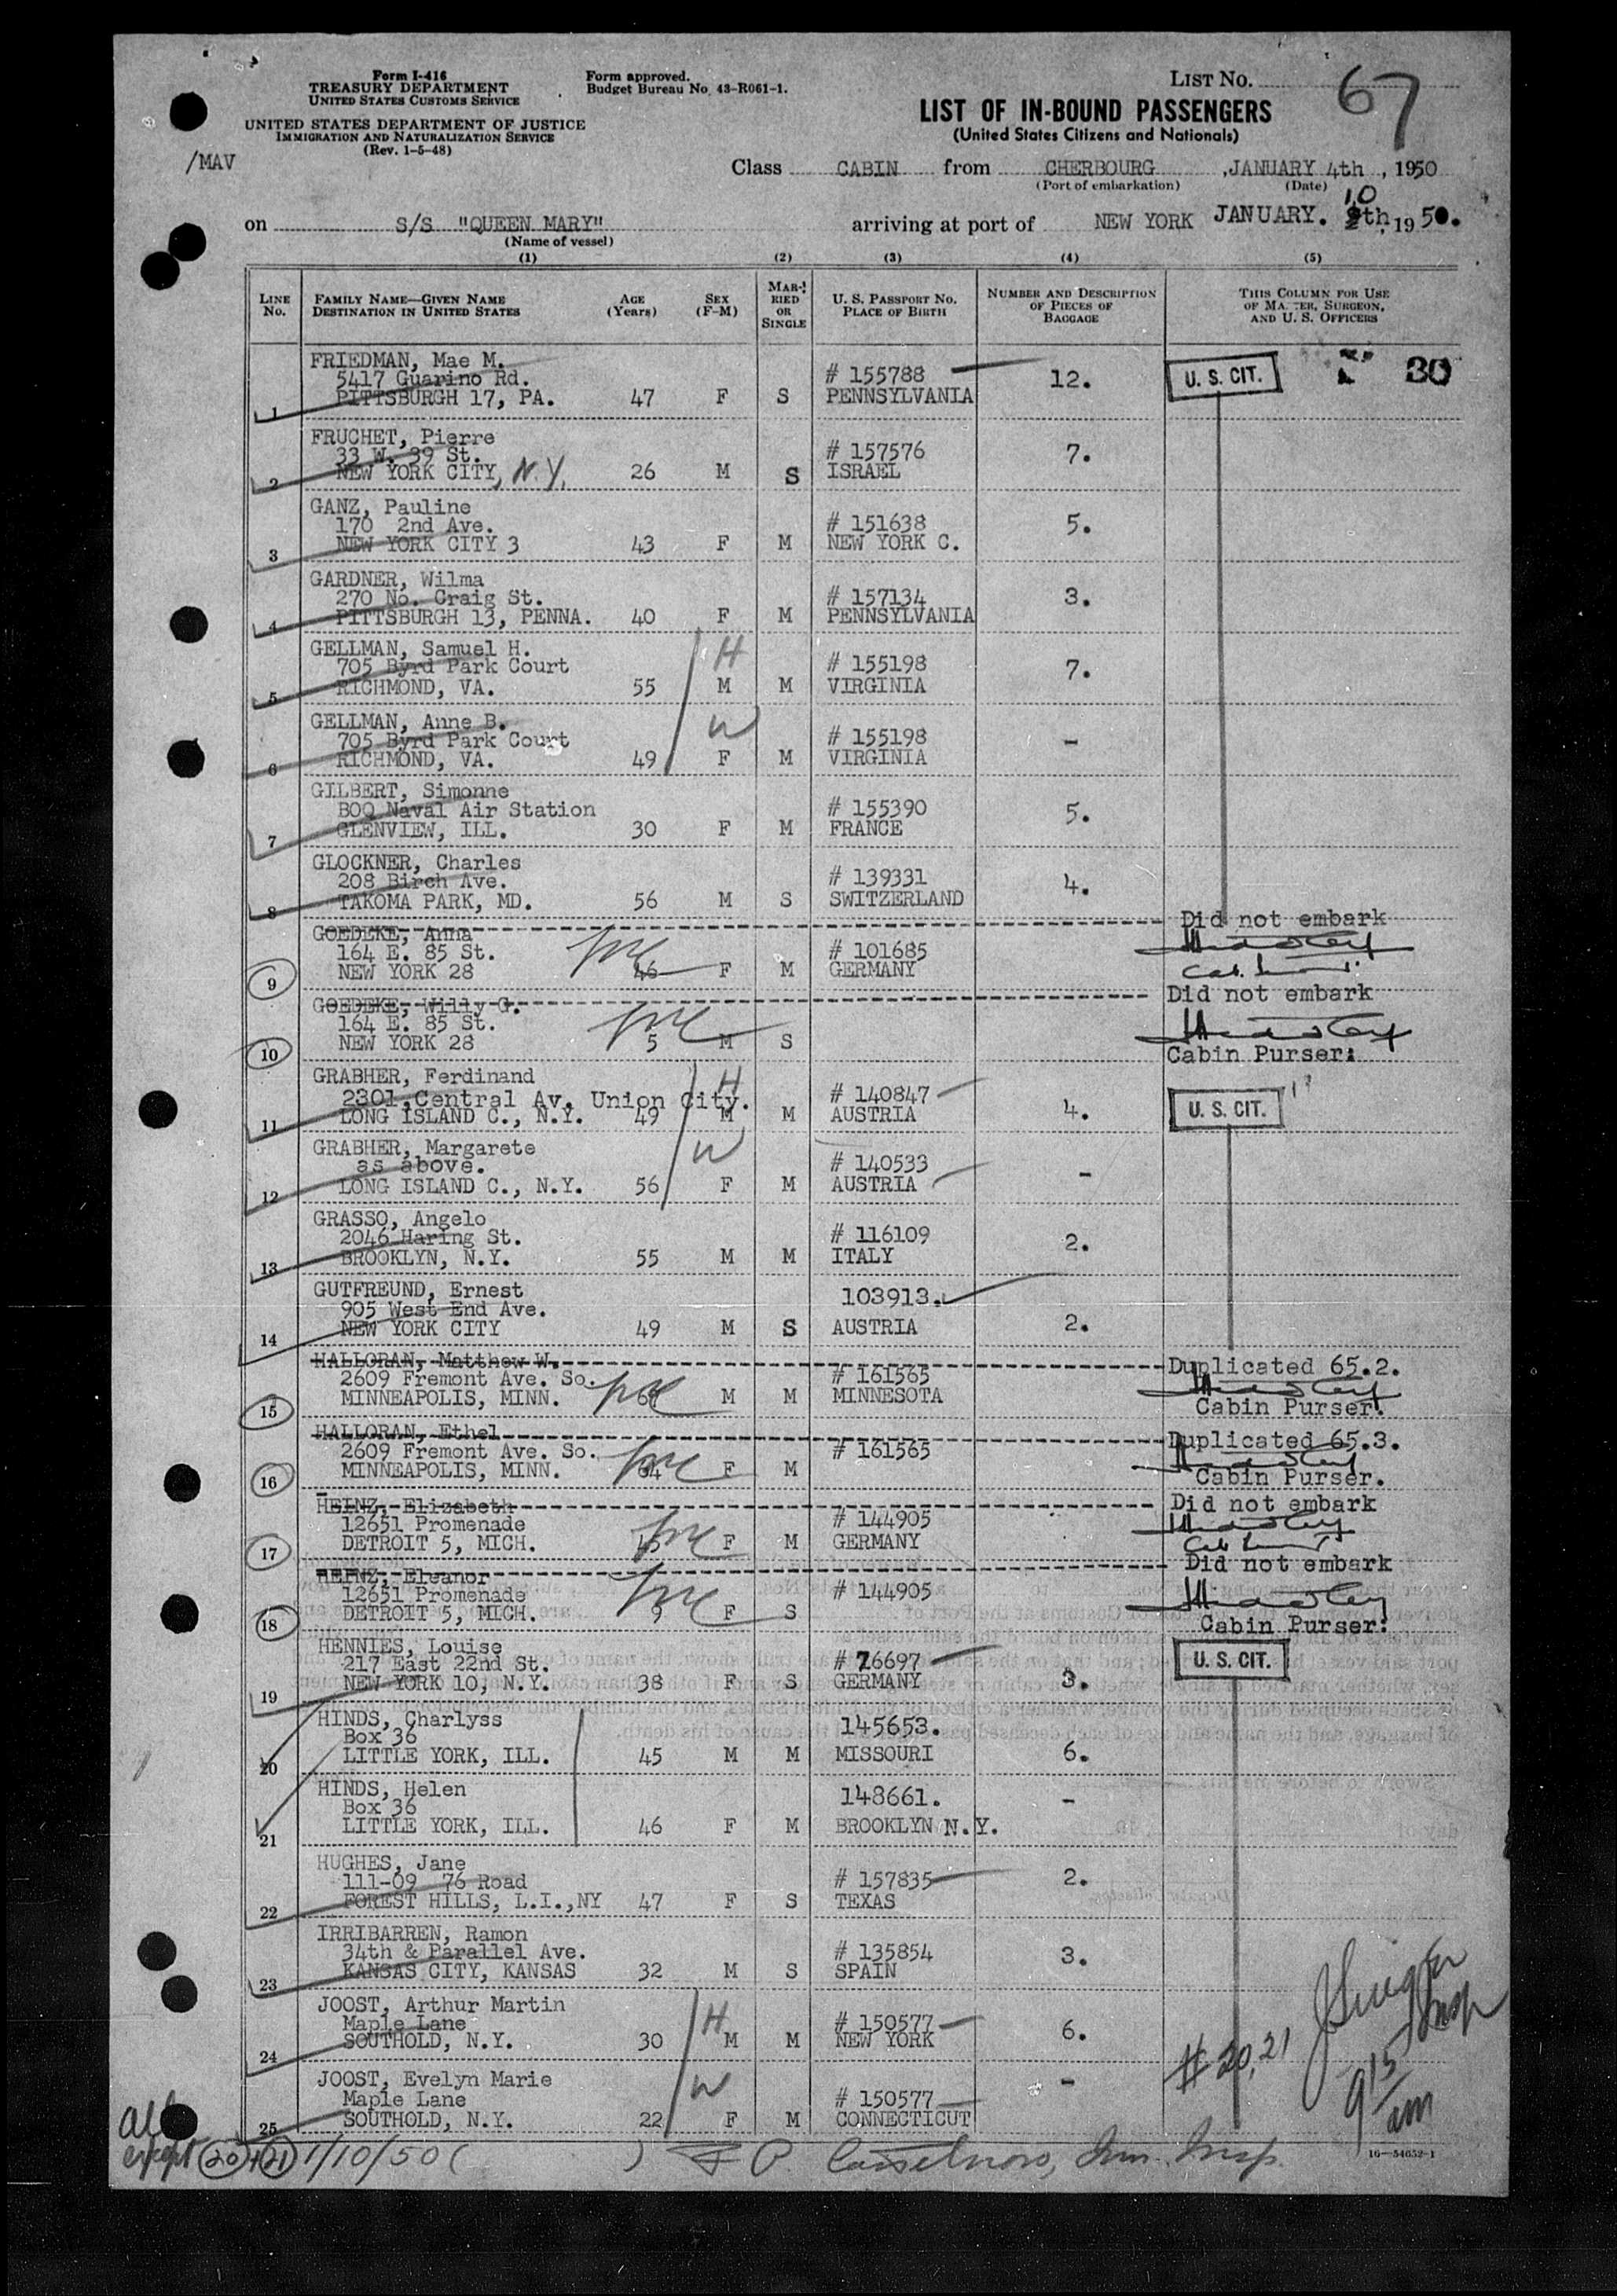 Form I-416
TREASURY DEPARTMENT
UNITED STATES CUSTOMS SERVICE
UNITED STATES DEPARTMENT OF JUSTICE
IMMIGRATION AND NATURALIZATION SERVICE
(Rev. 1-5-48)
/MAV
Form approved.
Budget Bureau No. 43-R061-1.
LIST No. 67
LIST OF IN-BOUND PASSENGERS
(United States Citizens and Nationals)
Class CABIN from CHERBOURG ,JANUARY 4th , 1950
(Port of embarkation) (Date)
on S/S "QUEEN MARY" arriving at port of NEW YORK JANUARY. 10 th, 1950.
(Name of vessel)
(1) (2) (3) (4) (5)
LINE No. FAMILY NAME—GIVEN NAME DESTINATION IN UNITED STATES AGE (Years) SEX (F-M) MARRIED OR SINGLE U. S. PASSPORT NO. PLACE OF BIRTH NUMBER AND DESCRIPTION OF PIECES OF BAGGAGE THIS COLUMN FOR USE OF MASTER, SURGEON, AND U. S. OFFICERS
FRIEDMAN, Mae M.
5417 Guarino Rd. # 155788 12. U. S. CIT. 30
1 PITTSBURGH 17, PA. 47 F S PENNSYLVANIA
FRUCHET, Pierre
33 W. 39 St. # 157576 7.
2 NEW YORK CITY, N.Y. 26 M S ISRAEL
GANZ, Pauline
170 2nd Ave. # 151638 5.
3 NEW YORK CITY 3 43 F M NEW YORK C.
GARDNER, Wilma
270 No. Craig St. # 157134 3.
4 PITTSBURGH 13, PENNA. 40 F M PENNSYLVANIA
GELLMAN, Samuel H. H
705 Byrd Park Court # 155198 7.
5 RICHMOND, VA. 55 M M VIRGINIA
GELLMAN, Anne B. W
705 Byrd Park Court # 155198 -
6 RICHMOND, VA. 49 F M VIRGINIA
GILBERT, Simonne
BOQ Naval Air Station # 155390 5.
7 GLENVIEW, ILL. 30 F M FRANCE
GLOCKNER, Charles
208 Birch Ave. # 139331 4.
8 TAKOMA PARK, MD. 56 M S SWITZERLAND
GOEDEKE, Anna Did not embark
164 E. 85 St. # 101685
9 NEW YORK 28 46 F M GERMANY
GOEDEKE, Willy G. Did not embark
164 E. 85 St.
10 NEW YORK 28 5 M S Cabin Purser:
GRABHER, Ferdinand H
2301 Central Av. Union City. # 140847 4. U. S. CIT.
11 LONG ISLAND C., N.Y. 49 M M AUSTRIA
GRABHER, Margarete W
as above. # 140533 -
12 LONG ISLAND C., N.Y. 56 F M AUSTRIA
GRASSO, Angelo
2046 Haring St. # 116109 2.
13 BROOKLYN, N.Y. 55 M M ITALY
GUTFREUND, Ernest
905 West End Ave. 103913.
14 NEW YORK CITY 49 M S AUSTRIA 2.
HALLORAN, Matthew W. Duplicated 65.2.
2609 Fremont Ave. So. # 161565
15 MINNEAPOLIS, MINN. M M MINNESOTA Cabin Purser.
HALLORAN, Ethel Duplicated 65.3.
2609 Fremont Ave. So. # 161565
16 MINNEAPOLIS, MINN. 64 F M Cabin Purser.
HEINZ, Elizabeth Did not embark
12651 Promenade # 144905
17 DETROIT 5, MICH. F M GERMANY
HEINZ, Eleanor Did not embark
12651 Promenade # 144905
18 DETROIT 5, MICH. 9 F S Cabin Purser:
HENNIES, Louise
217 East 22nd St. # 76697 U. S. CIT.
19 NEW YORK 10, N.Y. 38 F S GERMANY 3.
HINDS, Charlyss
Box 36 145653.
20 LITTLE YORK, ILL. 45 M M MISSOURI 6.
HINDS, Helen
Box 36 148661. -
21 LITTLE YORK, ILL. 46 F M BROOKLYN N.Y.
HUGHES, Jane
111-09 76 Road # 157835 2.
22 FOREST HILLS, L.I.,NY 47 F S TEXAS
IRRIBARREN, Ramon
34th & Parallel Ave. # 135854 3.
23 KANSAS CITY, KANSAS 32 M S SPAIN
JOOST, Arthur Martin H
Maple Lane # 150577 6.
24 SOUTHOLD, N.Y. 30 M M NEW YORK
JOOST, Evelyn Marie W
Maple Lane # 150577 -
25 SOUTHOLD, N.Y. 22 F M CONNECTICUT
# 20, 21
Insp
9 15 am
All
except 20 + 21 1/10/50 ( ) Imm. Insp.
16—54652-1